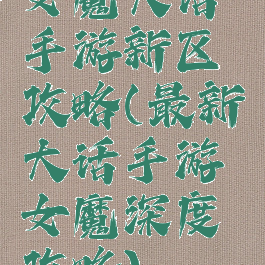 女魔大话
手游新区
攻略(最新
大话手游
女魔深度
攻略)